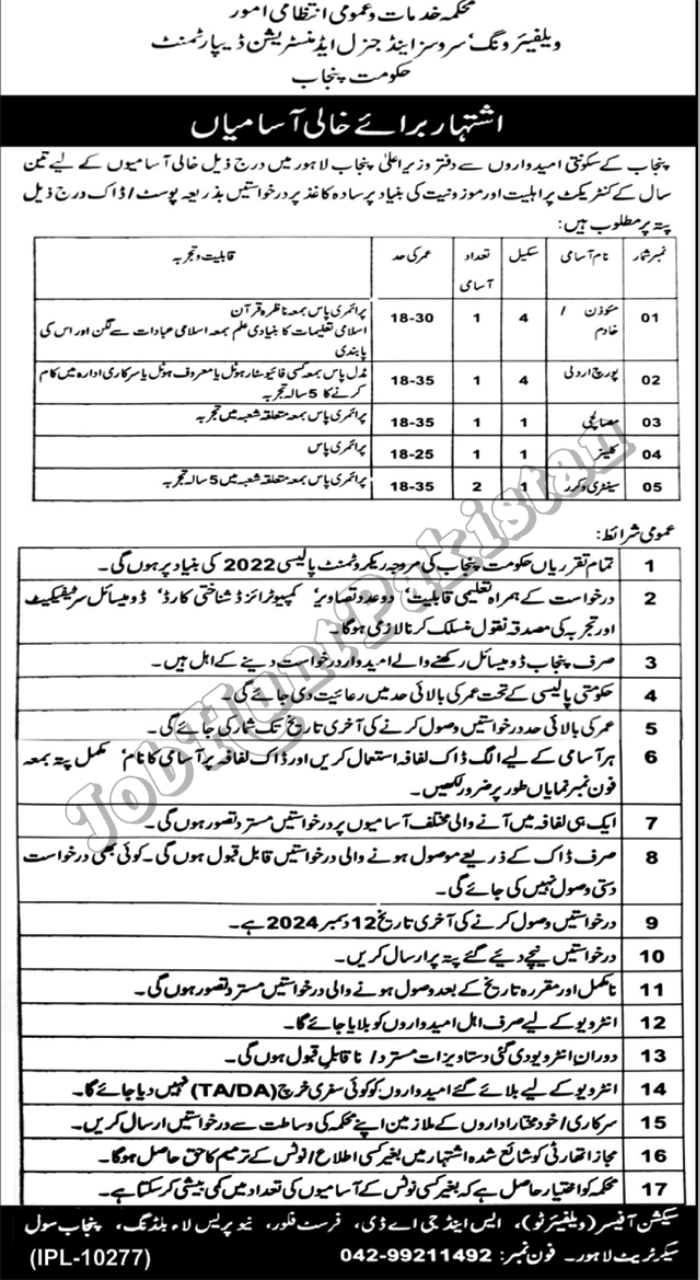 محکمہ خدمات و عمومی انتظامی امور
ویلفیئر ونگ، سروسز اینڈ جنرل ایڈمنسٹریشن ڈیپارٹمنٹ
حکومت پنجاب
اشتہار برائے خالی آسامیاں
پنجاب کے سکونتی امیدواروں سے دفتر وزیر اعلیٰ پنجاب لاہور میں درج ذیل خالی آسامیوں کے لیے تین
سال کے کنٹریکٹ پر اہلیت اور موزونیت کی بنیاد پر سادہ کاغذ پر درخواستیں بذریعہ پوسٹ / ڈاک درج ذیل
پتہ پر مطلوب ہیں:
نمبر شمار نام آسامی سکیل تعداد آسامی عمر کی حد قابلیت و تجربہ
01 مؤذن / خادم 4 1 18-30 پرائمری پاس بمعہ ناظرہ قرآن
اسلامی تعلیمات کا بنیادی علم بمعہ اسلامی عبادات سے لگن اور اس کی
پابندی
02 پورچ اردلی 4 1 18-35 مڈل پاس بمعہ کسی فائیو سٹار ہوٹل یا معروف ہوٹل یا سرکاری ادارہ میں کام
کرنے کا 5 سالہ تجربہ
03 مصالچی 1 1 18-35 پرائمری پاس بمعہ متعلقہ شعبہ میں تجربہ
04 کلینر 1 1 18-25 پرائمری پاس
05 سینٹری ورکر 1 2 18-35 پرائمری پاس بمعہ متعلقہ شعبہ میں 5 سالہ تجربہ
عمومی شرائط:
1 تمام تقرریاں حکومت پنجاب کی مروجہ ریکروٹمنٹ پالیسی 2022 کی بنیاد پر ہوں گی۔
2 درخواست کے ہمراہ تعلیمی قابلیت، دو عدد تصاویر، کمپیوٹرائزڈ شناختی کارڈ، ڈومیسائل سرٹیفکیٹ
اور تجربہ کی مصدقہ نقول منسلک کرنا لازمی ہوگا۔
3 صرف پنجاب ڈومیسائل رکھنے والے امیدوار درخواست دینے کے اہل ہیں۔
4 حکومتی پالیسی کے تحت عمر کی بالائی حد میں رعائیت دی جائے گی۔
5 عمر کی بالائی حد درخواستیں وصول کرنے کی آخری تاریخ تک شمار کی جائے گی۔
6 ہر آسامی کے لیے الگ ڈاک لفافہ استعمال کریں اور ڈاک لفافہ پر آسامی کا نام، مکمل پتہ بمعہ
فون نمبر نمایاں طور پر ضرور لکھیں۔
7 ایک ہی لفافہ میں آنے والی مختلف آسامیوں پر درخواستیں مسترد تصور ہوں گی۔
8 صرف ڈاک کے ذریعے موصول ہونے والی درخواستیں قابل قبول ہوں گی۔ کوئی بھی درخواست
دستی وصول نہیں کی جائے گی۔
9 درخواستیں وصول کرنے کی آخری تاریخ 12 دسمبر 2024 ہے۔
10 درخواستیں نیچے دیئے گئے پتہ پر ارسال کریں۔
11 نامکمل اور مقررہ تاریخ کے بعد وصول ہونے والی درخواستیں مسترد تصور ہوں گی۔
12 انٹرویو کے لیے صرف اہل امیدواروں کو بلایا جائے گا۔
13 دوران انٹرویو دی گئی دستاویزات مسترد / ناقابل قبول ہوں گی۔
14 انٹرویو کے لیے بلائے گئے امیدواروں کو کوئی سفری خرچ (TA/DA) نہیں دیا جائے گا۔
15 سرکاری / خودمختار اداروں کے ملازمین اپنے محکمہ کی وساطت سے درخواستیں ارسال کریں۔
16 مجاز اتھارٹی کو شائع شدہ اشتہار میں بغیر کسی اطلاع / نوٹس کے ترمیم کا حق حاصل ہوگا۔
17 محکمہ کو اختیار حاصل ہے کہ بغیر کسی نوٹس کے آسامیوں کی تعداد میں کمی بیشی کر سکتا ہے۔
سیکشن آفیسر (ویلفیئر ٹو)، ایس اینڈ جی اے ڈی، فرسٹ فلور، نیو پریس لاء بلڈنگ، پنجاب سول
سیکرٹریٹ لاہور۔ فون نمبر: 042-99211492 (IPL-10277)
JobHuntPakistan